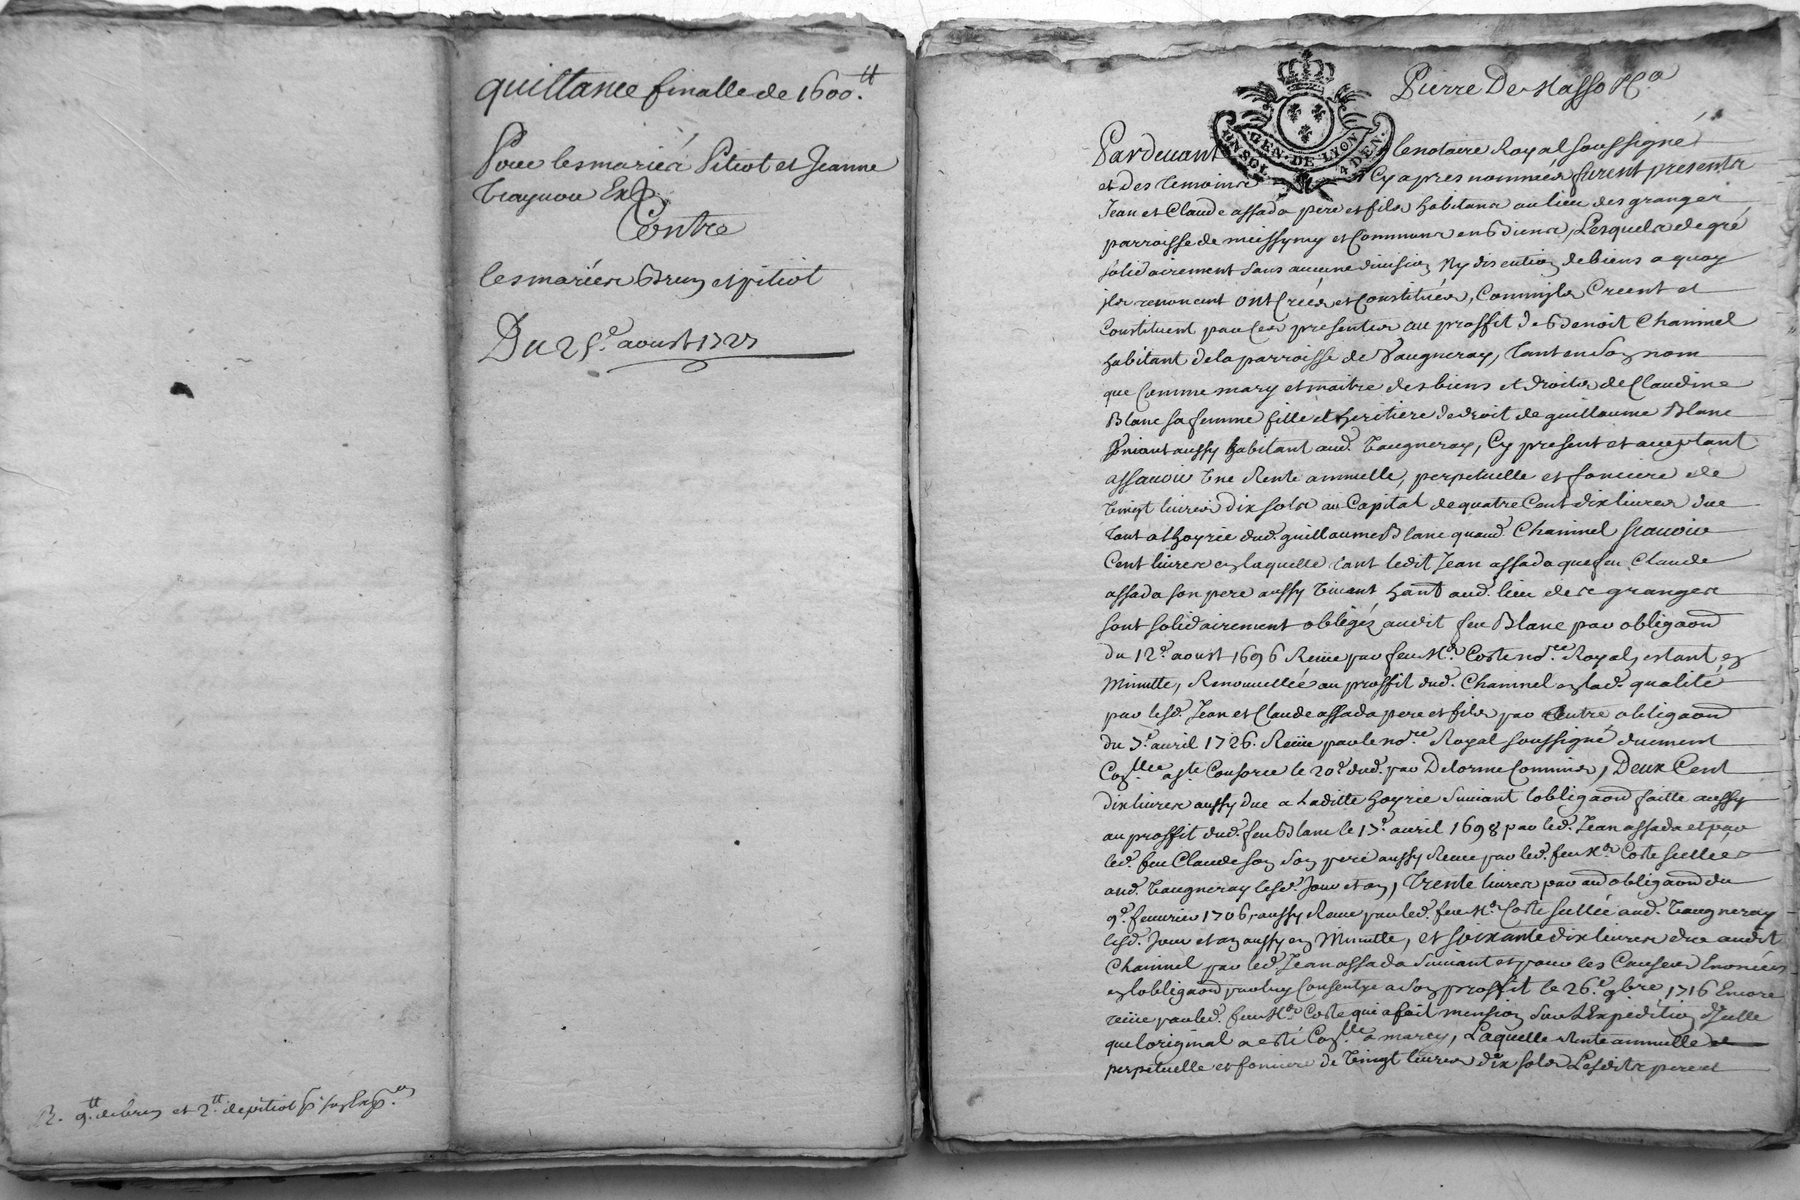 quittance finalle de 1600.tt
Pour les mariés Pitiot et Jeanne
Contre
les mariés Brun et pitiot
Du 25e. aoust 1727
B. 9.tt de brun et 2.tt de pitiot
Pierre De
GEN·DE LYON
UN SOL 4 DEN.
Pardevant le notaire Royal soussigné
et des temoins Cy apres nommés furent presents
Jean et Claude assada pere et fils habitans au lieu des granges
parroisse de meissymy et Communs en Biens, Lesquels de gré
solidairement sans aucune division Ny discution de biens a quoy
ils renoncent ont Créés et Constitués, Comm'ils Creent et
Constituent par Ces presentes au proffit de Benoit Chamel
habitant de la parroisse de Vaugneray, tant en son nom
que Comme mary et maitre des biens et droits de Claudine
Blanc sa femme fille et heritiere de droit de guillaume Blanc
vivant aussy habitant aud. Vaugneray, Cy present et acceptant
assavoir Une Rente annuelle, perpetuelle et fonciere de
Vingt livres dix sols au Capital de quatre Cent dix livres due
tant a thoyrie dud. guillaume Blanc quaud. Chamel scavoir
Cent livres en laquelle tant ledit Jean assada que feu Claude
assada son pere aussy Vivant hant aud. lieu des granges
sont solidairement obligés audit feu Blanc par obligaond
du 12e. aoust 1696 Reüe par feu Me. Coste nore. Royal, estant en
Minutte, Renouvellée au proffit dud. Chamel en lad. qualité
par lesd. Jean et Claude assada pere et fils par autre obligaond
du 7e. avril 1726. Reüe par le nore. Royal soussigné duement
Conllée a le 20e. dud. par Delorme Commis, Deux Cent
dix livres aussy due a Laditte hoyrie suivant lobligaond faitte aussy
au proffit dud. feu Blanc le 17e. avril 1698 par led. Jean assada et par
led. feu Claude son pere aussy Reüe par led. feu Me. Coste scellée
aud. Vaugneray lesd. Jour et an, Trente livres par aud obligaond du
9e. fevrier 1706, aussy Reüe par led. feu Me. Coste scellée aud. Vaugneray
lesd. Jour et an aussy en Minutte, et soixante dix livres due audit
Chamel par led. Jean assada suivant et pour les Causes Enoncées
en lobligaond par luy Consentye a son proffit le 26e. 9bre. 1716 Encore
reüe par led. feu Me. Coste qui a fait mension sur LExpedition dJcelle
que loriginal a esté Conlle. a marcy, Laquelle Rente annuelle
perpetuelle et fonciere de Vingt livres dix sols Lesdits pere et